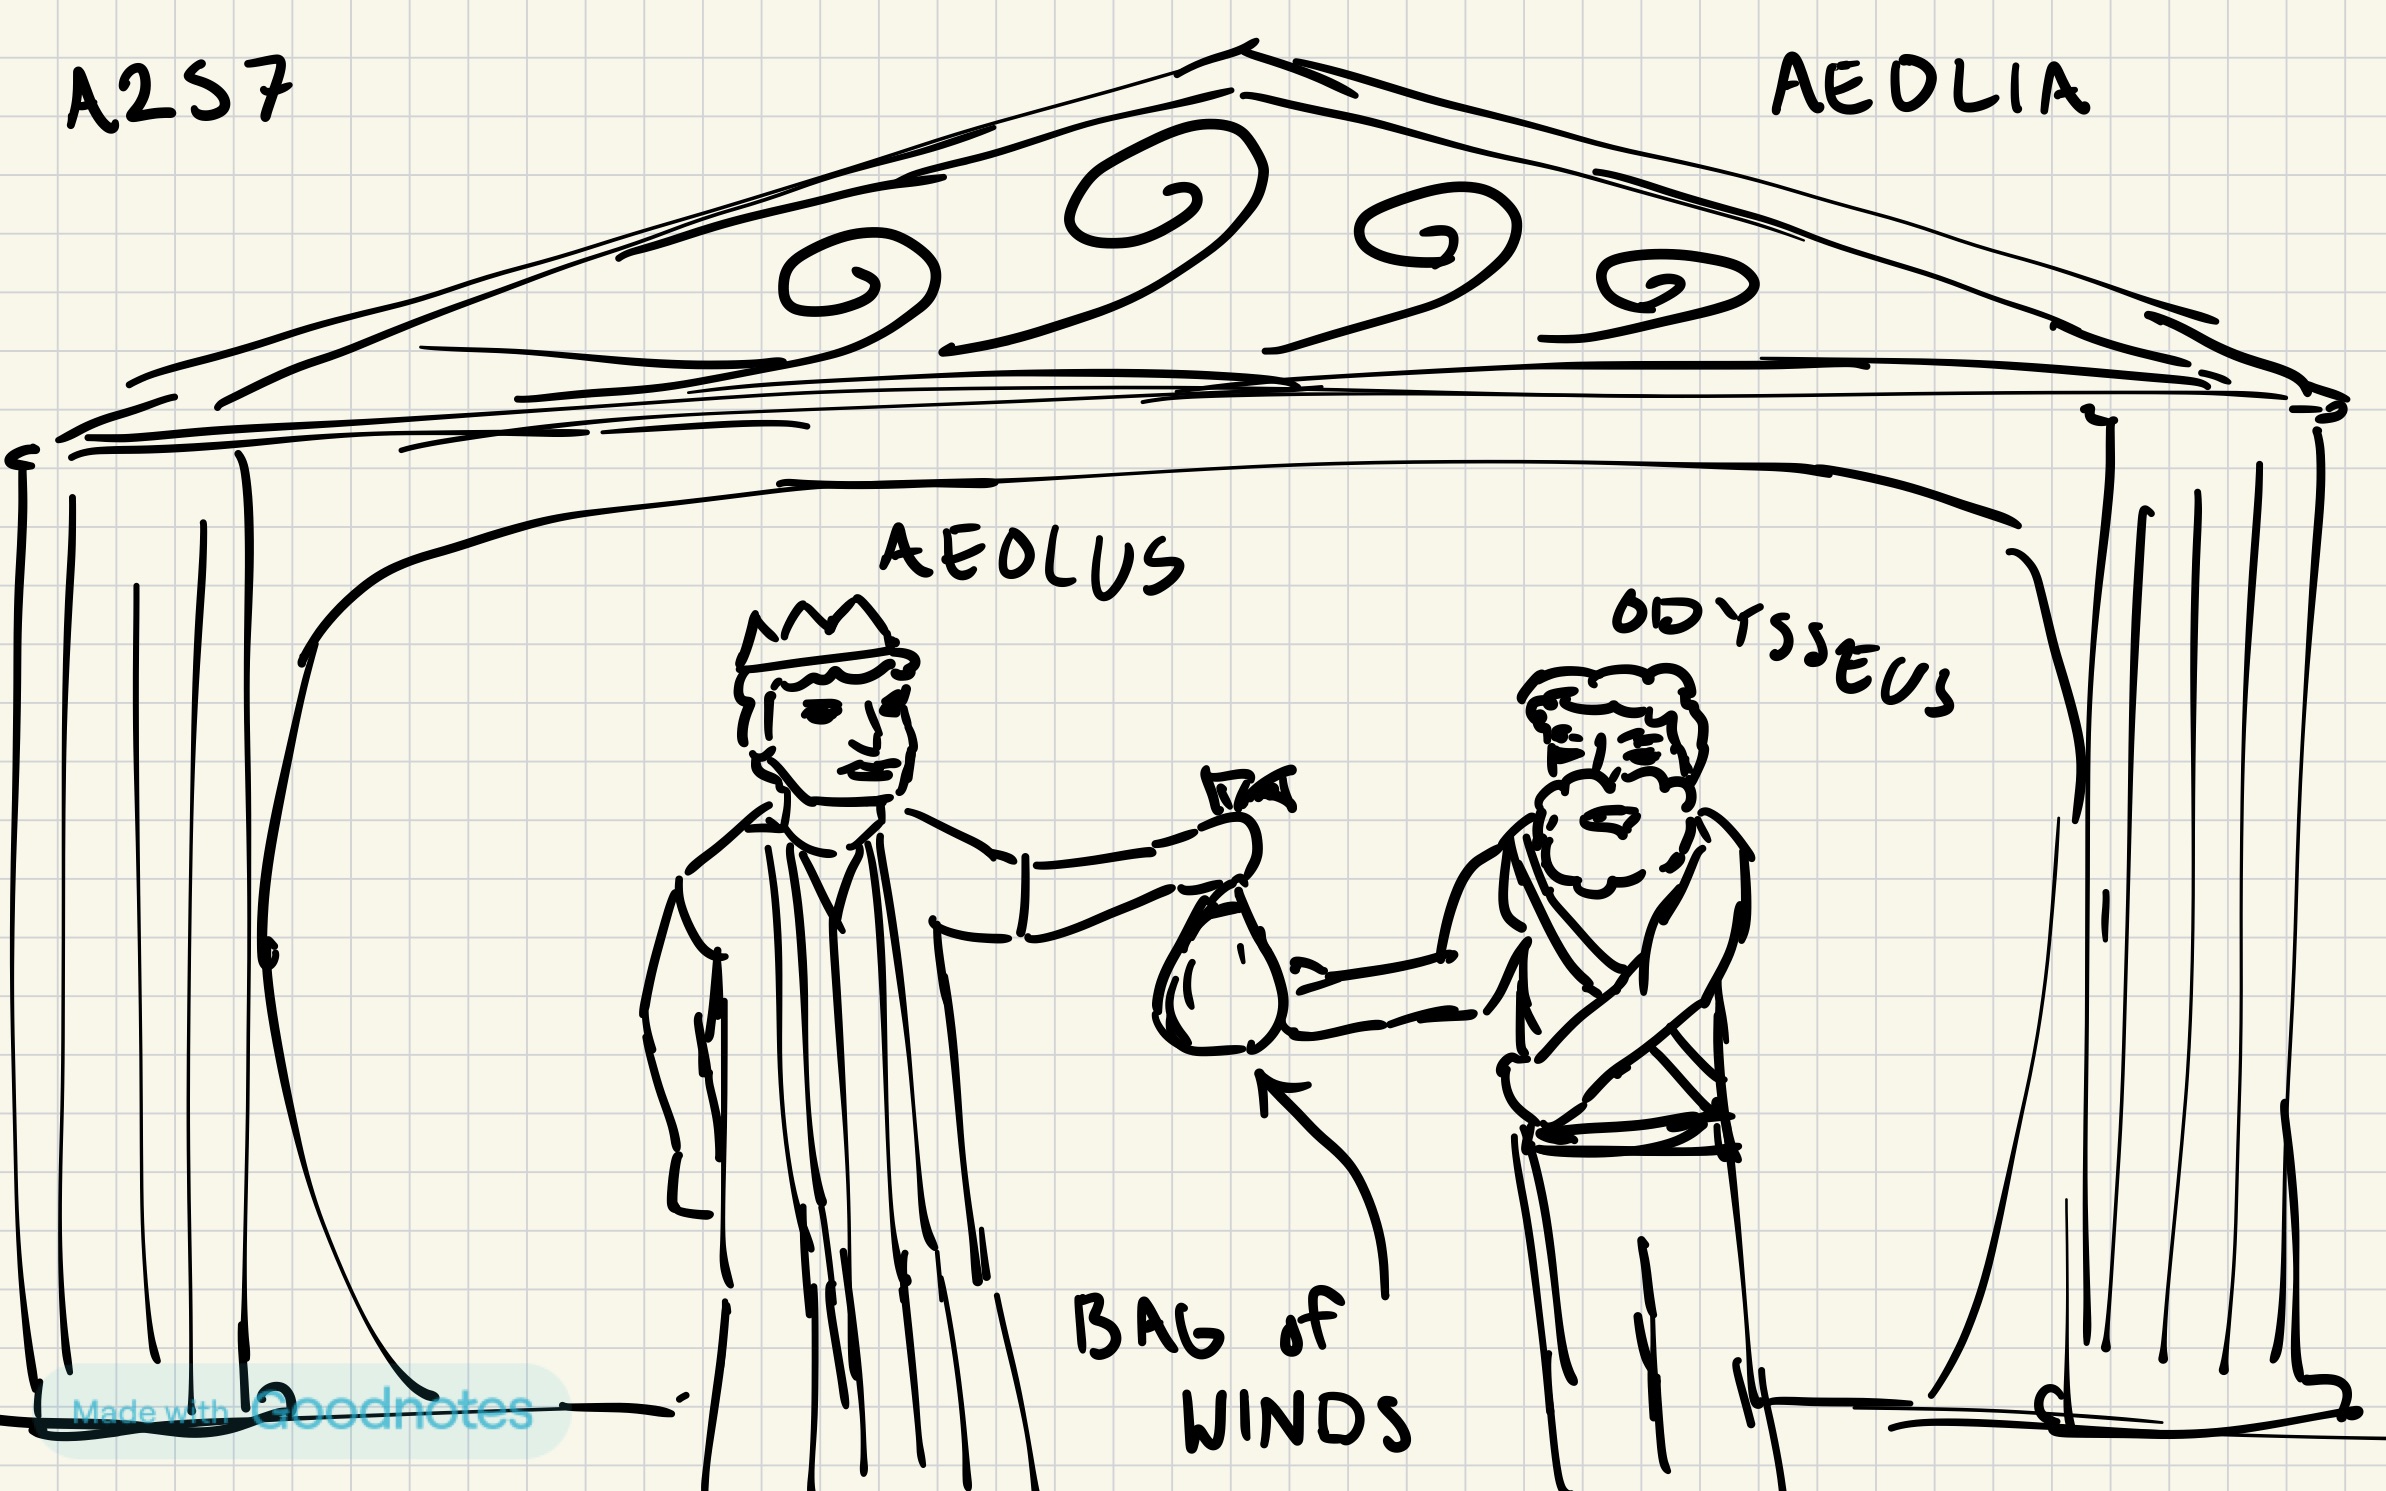 A2S7
AEOLIA
AEOLUS
ODYSSEUS
BAG OF
WINDS
Made with Goodnotes